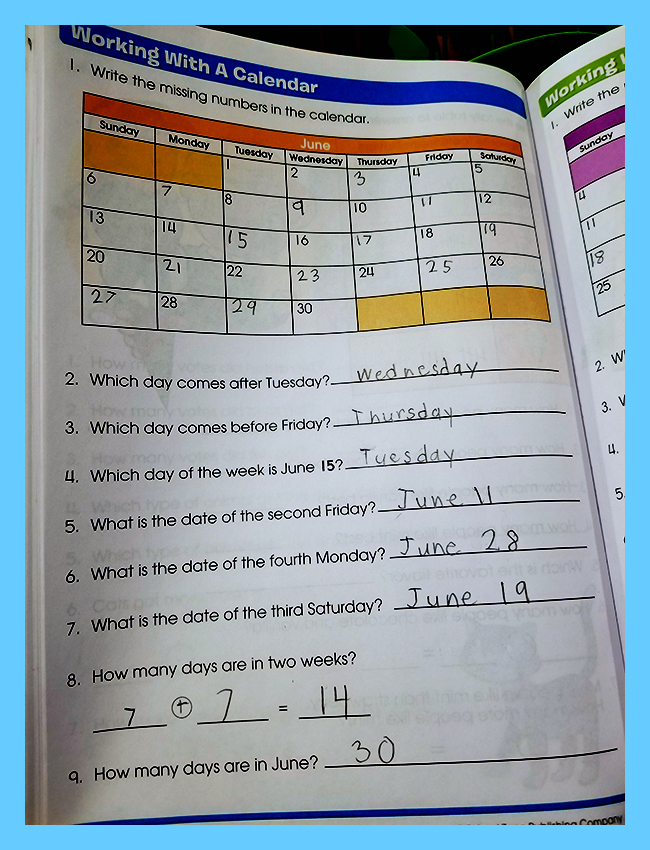 Working With A Calendar
1. Write the missing numbers in the calendar.
June
Sunday Monday Tuesday Wednesday Thursday Friday Saturday
1 2 3 4 5
6 7 8 9 10 11 12
13 14 15 16 17 18 19
20 21 22 23 24 25 26
27 28 29 30
2. Which day comes after Tuesday? Wednesday
3. Which day comes before Friday? Thursday
4. Which day of the week is June 15? Tuesday
5. What is the date of the second Friday? June 11
6. What is the date of the fourth Monday? June 28
7. What is the date of the third Saturday? June 19
8. How many days are in two weeks?
7 + 7 = 14
9. How many days are in June? 30
Publishing Company
Working
1. Write the
Sunday
4
11
18
25
2. W
3.
4.
5.